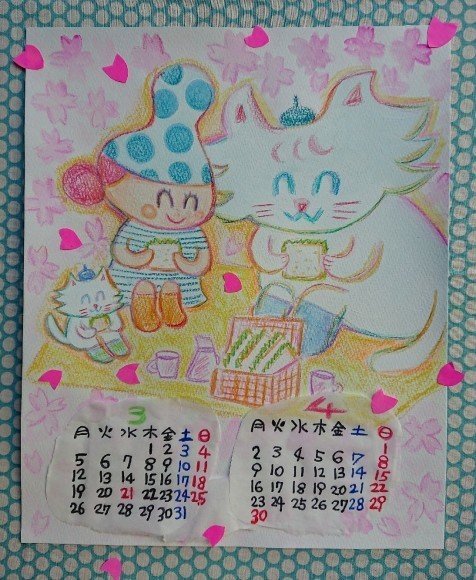 3
月 火 水 木 金 土 日
1 2 3 4
5 6 7 8 9 10 11
12 13 14 15 16 17 18
19 20 21 22 23 24 25
26 27 28 29 30 31
4
月 火 水 木 金 土 日
1
2 3 4 5 6 7 8
9 10 11 12 13 14 15
16 17 18 19 20 21 22
23 24 25 26 27 28 29
30